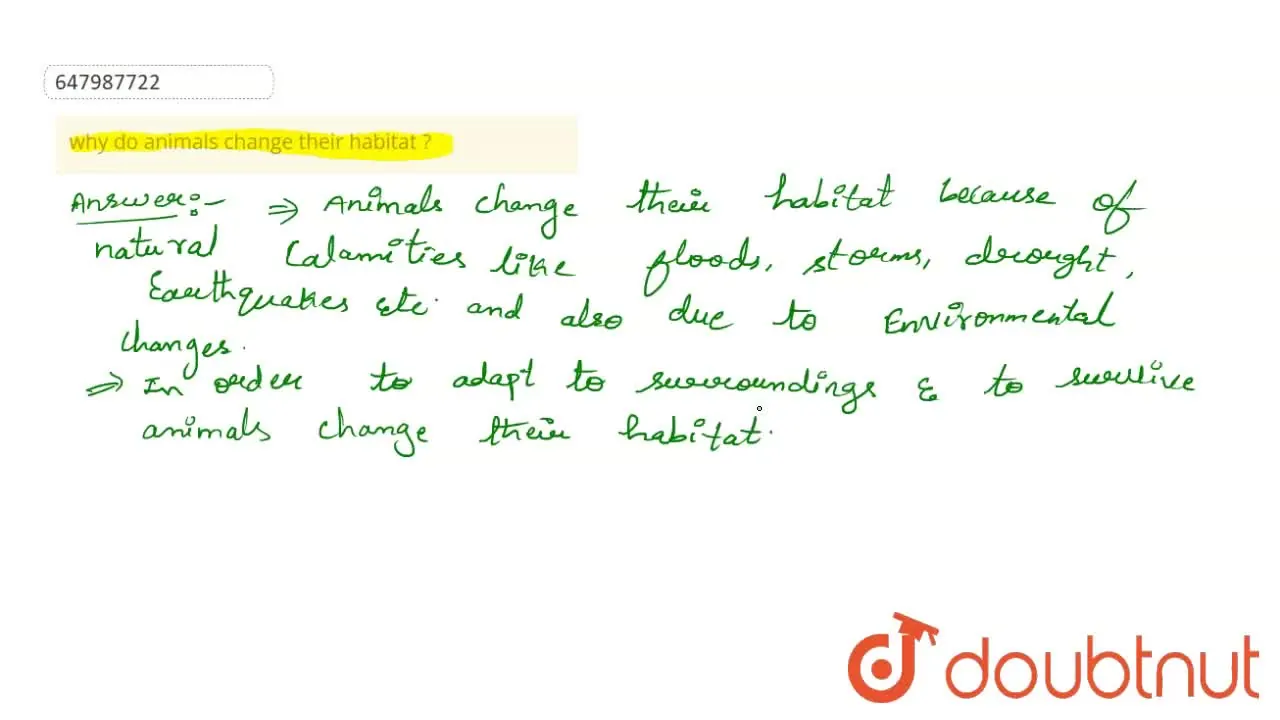 647987722
why do animals change their habitat ?
Answer:- ⇒ Animals change their habitat because of
natural Calamities like floods, storms, drought,
Earthquakes etc. and also due to Environmental
changes.
⇒ In order to adapt to surroundings & to survive
animals change their habitat.
doubtnut